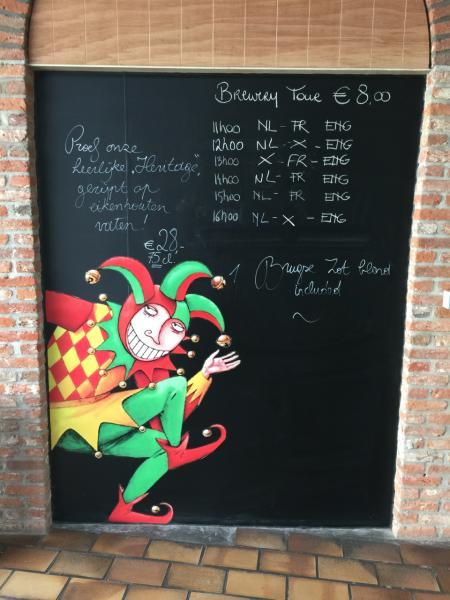 Brewery Tour € 8,00
11h00 NL - FR ENG
12h00 NL - X - ENG
13h00 X - FR - ENG
14h00 NL - FR ENG
15h00 NL - FR ENG
16h00 NL - X - ENG
Proef onze
heerlijke „Heritage",
gerijpt op
eikenhouten
vaten!
€ 28,-
75cl.
1 Brugse Zot blond
included
~